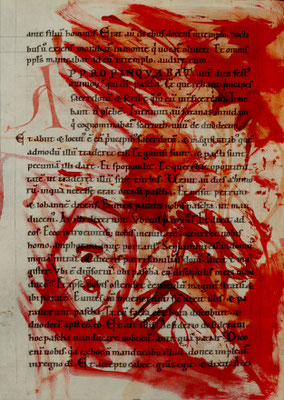 ante filiu hominis. Erat aut diebus docens in templo. noctib;
bus u exiens morabat in monte q uocat oliueti. Et omnis
ppls manicabat ad eu in templo audire eum.
APPROPINQVABAT aut dies fest
azimoꝝ qui dr pascha. Et querebant principes
sacerdotu & scribe qm eu interficerent. time
bant u plebe. Intrauit aut satanas in iudam
q cognominabat scarioth. unu de duodecim.
Et abiit & locut e cu principib; sacerdotu & magistratib; que
admodu illu traderet eis. Et gauisi sunt & pacti sunt
pecunia illi dare. Et spopondit. Et querebat oportuni
tate ut traderet illu sine turbis. Venit aut dies azimo
ru. in qua necesse erat occidi pascha. Et misit petrum
& iohanne dicens. Euntes parate nobis pascha. ut man
ducem. At illi dixerunt. Vbi uis parem. Et dixit ad
eos. Ecce introeuntib; uobis in ciuitate. occurret uobis
homo
aque portans. Sequimini eu in domu
in qua intrat. & dicetis patri familias dom. dicit
gister. Vbi e diuersoriu. ubi pascha cu discipulis meis man
ducem. Et ipse uobis ostendet cenaculu magnu stratu. &
ibi parate. Euntes aut inuenerunt sic dixit illis. & pa
rauer pascha. Et cu facta eet hora discubuit. &
duodeci apli cu eo. Et ait illis. Desiderio desideraui
hoc pascha manducare uobiscu. ante qua patiar. Dico
eni uobis. qa ex hoc n manducabo illud. donec impleat
in regno di. Et accepto calice. gras egit. & dixit. Accipi